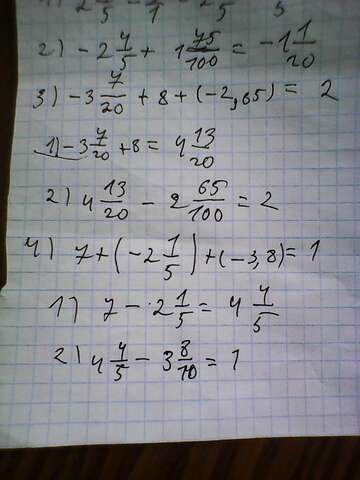 2) -2 4/5 + 1 75/100 = -1 1/20
3) -3 7/20 + 8 + (-2,65) = 2
1) -3 7/20 + 8 = 4 13/20
2) 4 13/20 - 2 65/100 = 2
4) 7 + (-2 1/5) + (-3,8) = 1
1) 7 - 2 1/5 = 4 4/5
2) 4 4/5 - 3 8/10 = 1